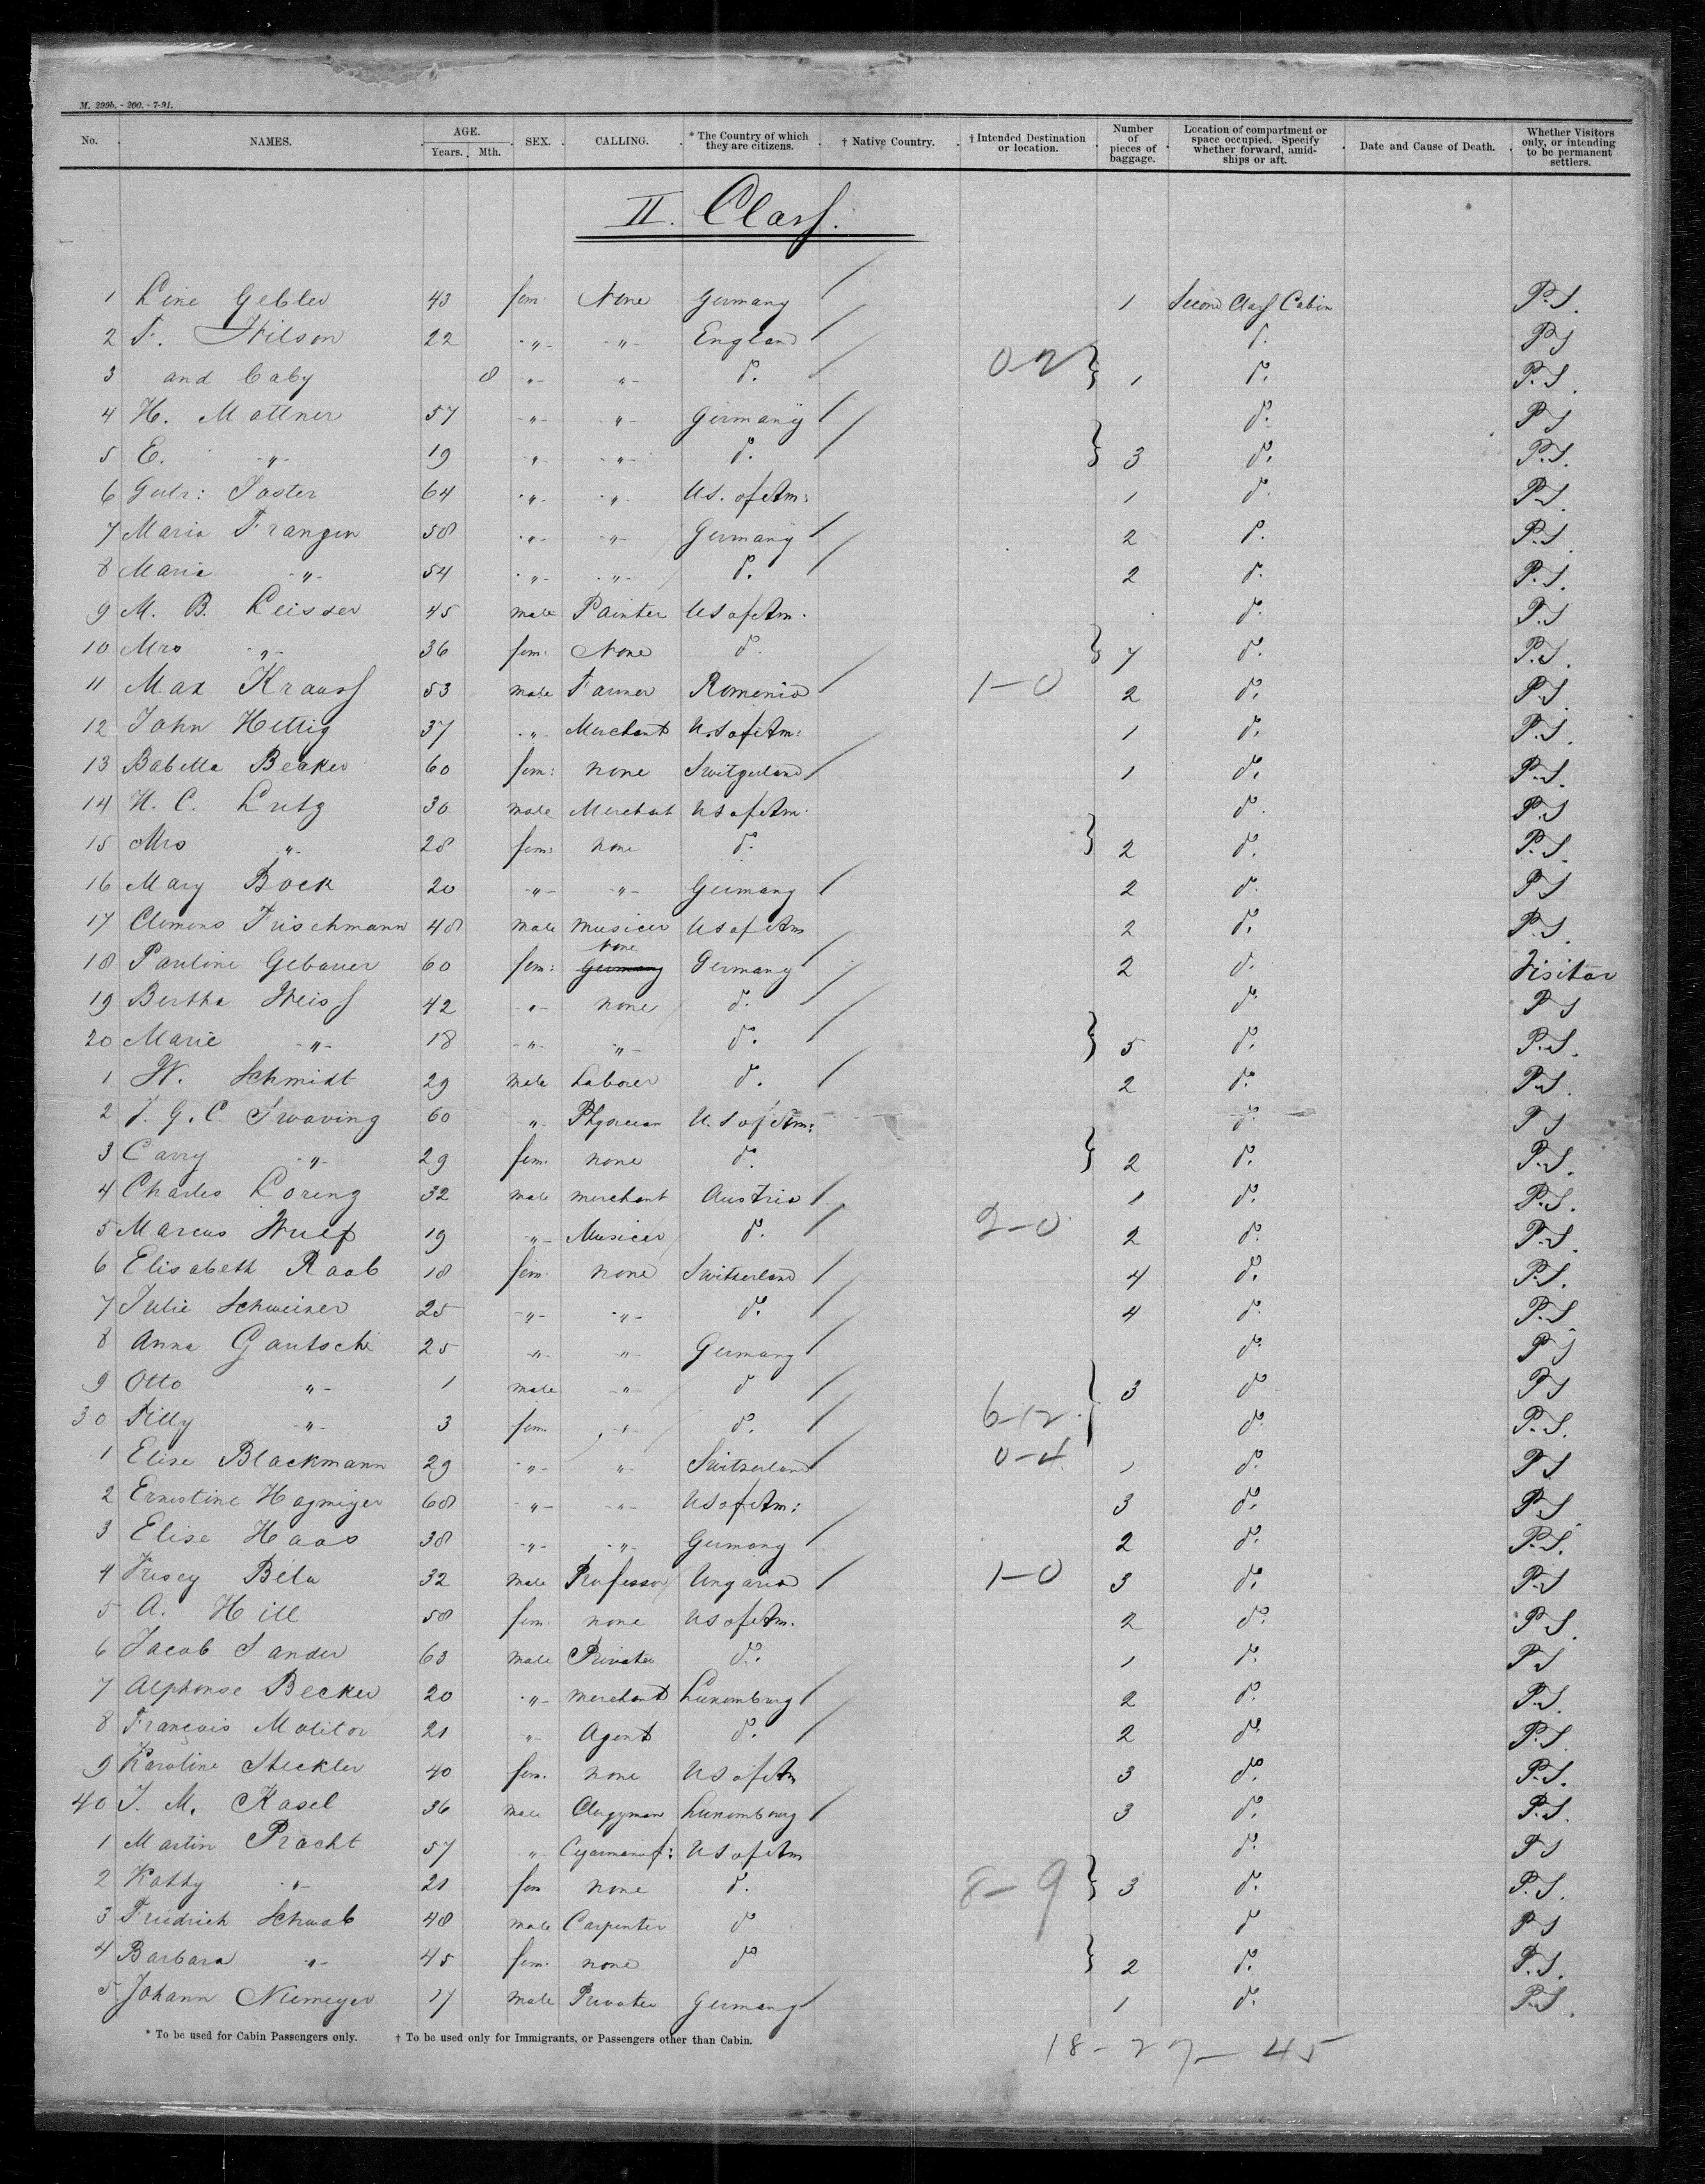 M. 299b. - 200. - 7-91.
No. NAMES. AGE. Years. Mth. SEX. CALLING. * The Country of which they are citizens. † Native Country. † Intended Destination or location. Number of pieces of baggage. Location of compartment or space occupied. Specify whether forward, amidships or aft. Date and Cause of Death. Whether Visitors only, or intending to be permanent settlers.
II. Class.
1 Line Gebler 43 fem. None Germany / 1 Second Class Cabin P.S.
2 F. Wilson 22 -"- -"- England / do. PS
3 and baby 8 -"- -"- do. / 0-2 } 1 do. P.S.
4 H. Mattner 57 -"- -"- Germany / do. PS
5 E. -"- 19 -"- -"- do. / } 3 do. P.S.
6 Gertr: Paster 64 -"- -"- US. of Am: 1 do. P.S
7 Maria Frangen 58 -"- -"- Germany / 2 do. P.S.
8 Marie -"- 54 -"- -"- do. / 2 do. P.S.
9 M. B. Leisser 45 male Painter US of Am. do. P.S
10 Mrs -"- 36 fem: None do. } 7 do. P.S.
11 Max Krauss 53 male Farmer Romenia / 1-0 2 do. P.S.
12 John Hettig 37 -"- Merchant U.S of Am: 1 do. P.S.
13 Babetta Beaker 60 fem: none Switzerland / 1 do. P.S.
14 H. C. Lutz 30 male Merchant US of Am. do. P.S
15 Mrs -"- 28 fem: none do. } 2 do. P.S.
16 Mary Bock 20 -"- -"- Germany / 2 do. P.S
17 Clemens Frischmann 48 male musicer US of Am 2 do. P.S.
18 Pauline Gebauer 60 fem: None Germany Germany / 2 do. Visitor
19 Bertha Weiss 42 -"- none do. / do. PS
20 Marie -"- 18 -"- -"- do. / } 5 do. P.S.
1 W. Schmidt 29 male Laborer do. / 2 do. P.S.
2 J. G. C. Swaving 60 -"- Physician U.S of Am: do. PS
3 Carry -"- 29 fem. none do. } 2 do. P.S.
4 Charles Loreng 32 male merchant Austria / 1 do. P.S.
5 Marcus 19 -"- Musicer do. / 2-0 2 do. P.S.
6 Elisabeth Raab 18 fem. none Switzerland / 4 do. P.S.
7 Julie Schweizer 25 -"- -"- do. / 4 do. P.S.
8 Anna Gautschi 25 -"- -"- Germany / do. PS
9 Otto -"- 1 male -"- do / } 3 do PS
30 Tilly -"- 3 fem. -"- do. / 6-12 do. P.S.
1 Elise Blackmann 29 -"- -"- Switzerland / 0-4 1 do. PS
2 Ernestine Hagmeyer 68 -"- -"- US of Am: 3 do. P.S.
3 Elise Haas 38 -"- -"- Germany / 2 do. P.S.
4 Béla 32 male Professor Ungaria / 1-0 3 do. P.S
5 A. Hill 58 fem. none US of Am. 2 do. P.S.
6 Jacob Sander 63 male Privatier do. 1 do. P.S
7 Alphonse Becker 20 -"- merchant Luxemburg / 2 do. P.S.
8 François Molitor 21 -"- Agent do. / 2 do. P.S.
9 Karoline Steckler 40 fem. none US of Am 3 do. P.S.
40 J. M. Kasel 36 male Clergyman Luxembourg / 3 do. P.S.
1 Martin Pracht 57 -"- Cigarmanuf: US of Am do. PS
2 Kathy -"- 21 fem none do. 8-9 } 3 do. P.S.
3 Friedrich Schwab 48 male Carpenter do do PS
4 Barbara -"- 45 fem. none do } 2 do. P.S.
5 Johann Niemeyer 17 male Privatier Germany / 1 do. P.S.
* To be used for Cabin Passengers only. † To be used only for Immigrants, or Passengers other than Cabin.
18 - 27 - 45